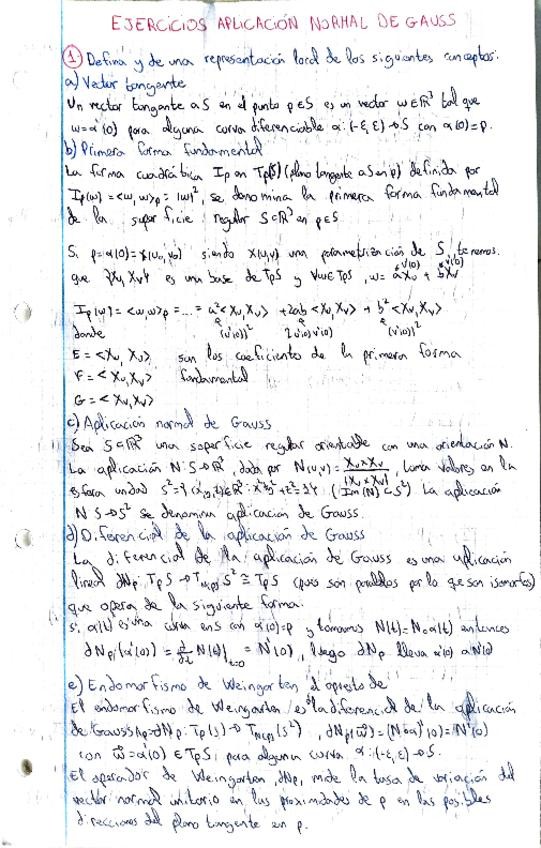 EJERCICIOS APLICACIÓN NORMAL DE GAUSS
① Defina y de una representación local de los siguientes conceptos.
a) Vector tangente
Un vector tangente a S en el punto p∈S es un vector w∈ℝ³ tal que
w=α'(0) para alguna curva diferenciable α:(-ε,ε)→S con α(0)=p.
b) Primera forma fundamental
La forma cuadrática Ip en Tp(S) (plano tangente a S en p) definida por
Ip(w)=<w,w>p=|w|², se denomina la primera forma fundamental
de la superficie regular S⊂ℝ³ en p∈S
Si p=α(0)=X(u₀,v₀) siendo X(u,v) una parametrización de S, tenemos
que {Xu,Xv} es una base de TpS y ∀w∈TpS, w=aXu+bXv
u'(0) v'(0)
Ip(w)=<w,w>p=...=a²<Xu,Xu>+2ab<Xu,Xv>+b²<Xv,Xv>
donde (u'(0))² 2u'(0)v'(0) (v'(0))²
E=<Xu,Xu> son los coeficiente de la primera forma
F=<Xu,Xv> fundamental
G=<Xv,Xv>
c) Aplicación normal de Gauss
Sea S⊂ℝ³ una superficie regular orientable con una orientación N.
La aplicación N:S→ℝ³, dada por N(u,v)=Xu×Xv/|Xu×Xv|, toma valores en la
esfera unidad S²={(x,y,z)∈ℝ³:x²+y²+z²=1}. (Im(N)⊂S²) La aplicación
N:S→S² se denomina aplicación de Gauss.
d) Diferencial de la aplicación de Gauss
La diferencial de la aplicación de Gauss es una aplicación
lineal dNp:TpS→TN(p)S²≅TpS (pues son paralelos por lo que son isomorfos)
que opera de la siguiente forma:
si α(t) es una curva en S con α(0)=p y tomamos N(t)=N∘α(t) entonces
dNp(α'(0))=d/dt N(t)|t=0=N'(0), luego dNp lleva α'(0) a N'(0)
e) Endomorfismo de Weingarten
el opuesto de
El endomorfismo de Weingarten es la diferencial de la aplicación
de Gauss Ap=-dNp:Tp(S)→TN(p)(S²), dNp(w⃗)=(N∘α)'(0)=N'(0)
con w⃗=α'(0)∈TpS, para alguna curva α:(-ε,ε)→S.
El operador de Weingarten, dNp, mide la tasa de variación del
vector normal unitario en las proximidades de p en las posibles
direcciones del plano tangente en p.